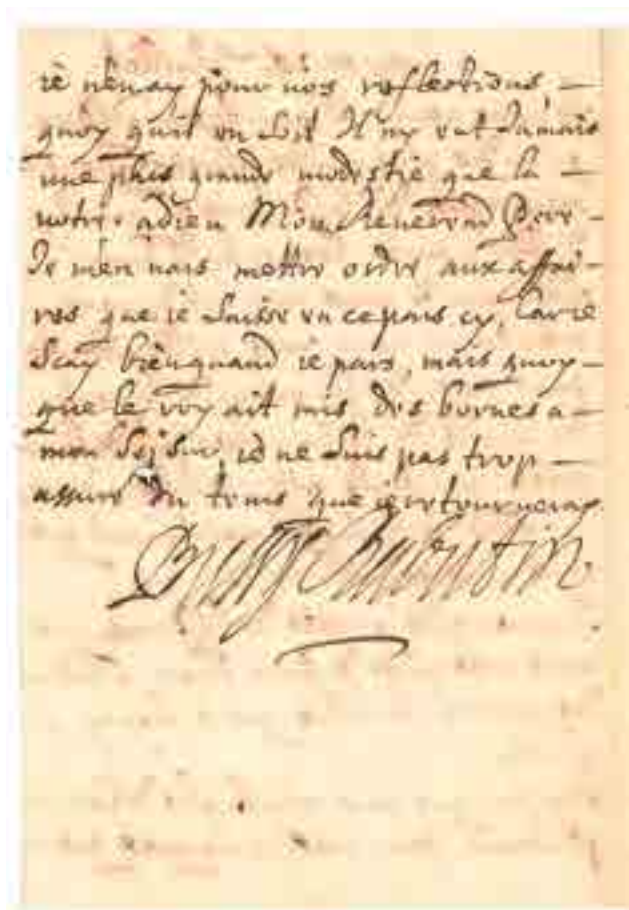 ie n'en ay pour vos reflections,
quoy qu'il en soit Il ny eut Jamais
une plus grande modestie que la
votre. adieu Mon Reverend Pere
Je m'en vais mettre ordre aux affai-
res que ie laisse en ce pais cy, Car ie
scay bien quand ie pars, mais quoy
que le roy ait mis des bornes a
mon sejour, ie ne suis pas trop
assuré du tems que ie retourneray
Bussy Rabutin